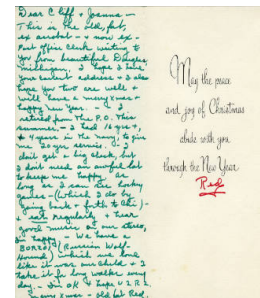 Dear Cliff & Joanna -
This is the old, fat,
ex acrobat - & now ex -
Post office clerk writing to
you from beautiful Douglas,
I hope I have
your correct address & I also
hope you two are well &
will have a merry xmas &
happy new year. - I
retired from the P.O. this
summer - I had 16 yrs +,
& 4 years in the navy, I give
me 20 yrs service. I
don't get a big check, but
I don't need an awful lot
to keep me happy. As
long as I can see
games - (which I do by
going back & forth to the) -
& eat regularly & hear
good music on our stereo,
I'm happy - We have a
BORZOI (Russian Wolf-
Hound) which we love
like it was our child & I
take it for long walks every
day. - I'm OK & hope U 2 R.
xmas - old fat Red.
May the peace
and joy of Christmas
abide with you
through the New Year
Red